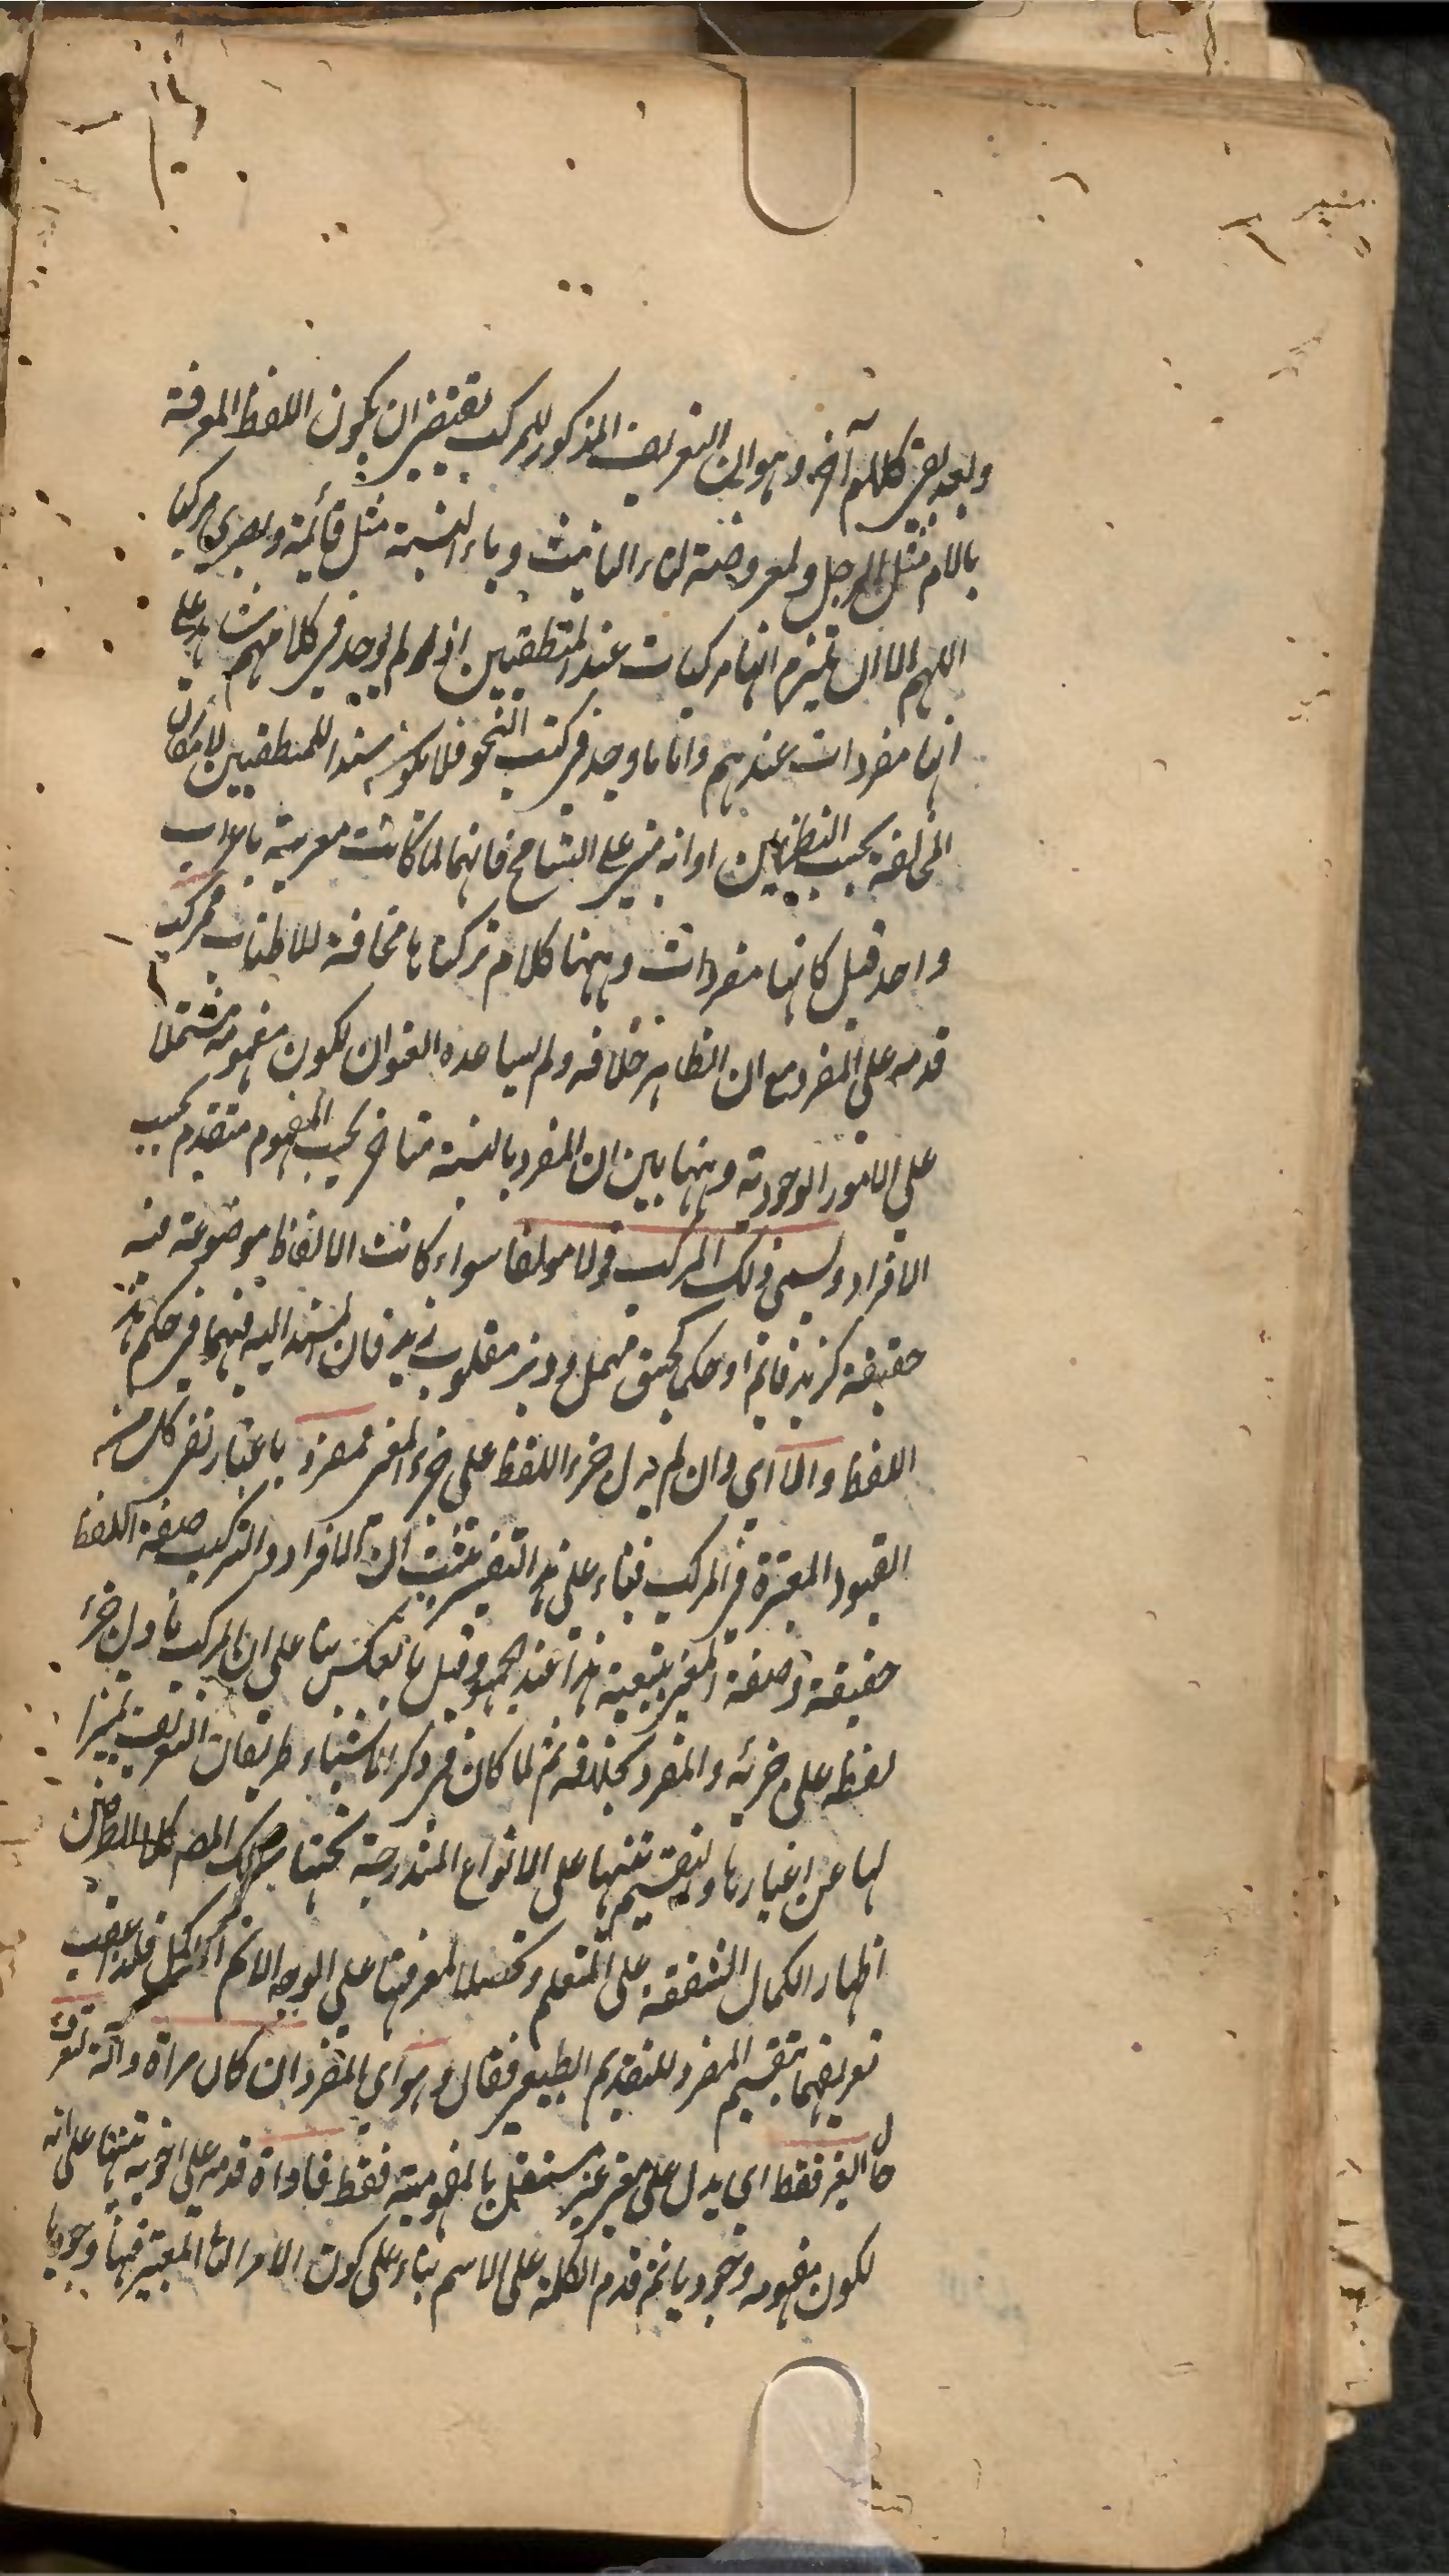 وبعد بقي كلام آخر وهو ان التعريف المذكور للمركب يقتضي ان يكون اللفظ المعرفة
باللام مثل الرجل والمعروضة لتاء التانيث وياء النسبة مثل قائمة وبصري مركبا
اللهم الا ان يلتزم انها مركبات عند المنطقيين اذ لم يوجد في كلامهم شاهد على
انها مفردات عندهم واما ما وجد في كتب النحو فلا يكون سندا للمنطقيين لامكان
المخالفة بحسب النظرين او انه مبني على التسامح فانهما لما كانت معربة باعراب
واحد قيل كانها مفردات وههنا كلام تركناها مخافة للاطناب فمركب
قدمه على المفرد مع ان الظاهر خلافه ولم يساعده العنوان لكون مفهومه مشتملا
على الامور الوجودية وههنا بين ان المفرد بالنسبة متاخر بحسب المفهوم متقدم بحسب
الافراد ويسمى ذلك المركب قولا مولفا سواء كانت الالفاظ موضوعة فيه
حقيقة كزيد قائم او حكما كجسق مهمل وديز مقلوب زيد فان المسند اليه فيهما في حكم هذا
اللفظ والا اي وان لم يدل جزء اللفظ على جزء المعنى فمفرد باعتبار نفي كل من
القيود المعتبرة في المركب فبناء على هذا التفسير يثبت ان الافراد والتركيب صفة اللفظ
حقيقة وصفة المعنى بتبعية هذا عند الجمهور وقيل بالعكس بناء على ان المركب ما دل جزء
لفظه على جزئه والمفرد بخلافه ثم لما كان في ذكر الاشياء طريقان التعريف تميزا
لها عن اغيارها والتقسيم تنبيها على الانواع المندرجة تحتها سلك المصـ كلا الطريقين
اظهارا لكمال الشفقة على المتعلم وتحصيلا لمعرفتها على الوجه الاتم الاكمل فلذا عقب
تعريفهما بتقسيم المفرد للتقديم الطبيعي فقال وهو اي المفرد ان كان مراة وآلة لتعرف
حال الغير فقط اي يدل على معنى غير مستقل بالمفهومية فقط فاداة قدمه على اخويه تنبيها على انه
لكون مفهومه وجوديا ثم قدم الكلمة على الاسم بناء على كون الامر الثاني المعتبر فيها وجوديا